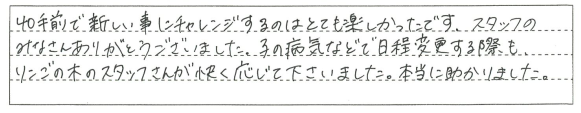 40手前で新しい事にチャレンジするのはとても楽しかったです。スタッフの
みなさんありがとうございました。子の病気などで日程変更する際も、
リンゴの木のスタッフさんが快く応じて下さいました。本当に助かりました。